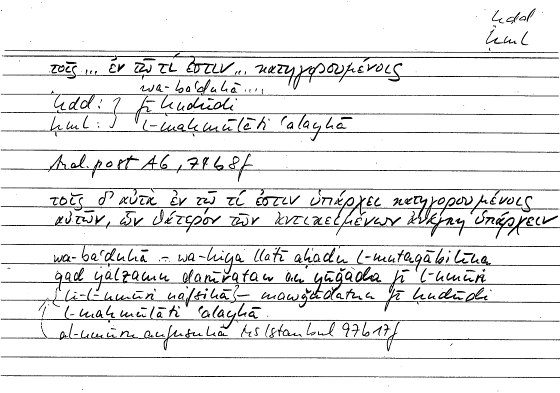 ḥdd
ḥml
τοῖς ... ἐν τῷ τί ἐστιν ... κατηγορουμένοις
wa-baʿḍuhā ....
ḥdd: } fī ḥudūdi
ḥml: } l-maḥmūlāti ʿalayhā
An. post A6, 74b8f
τοῖς δ' αὐτὰ ἐν τῷ τί ἐστιν ὑπάρχει κατηγορουμένοις
αὐτῶν, ὧν θάτερον τῶν ἀντικειμένων ἀνάγκη ὑπάρχειν
wa-baʿḍuhā – wa-hiya llatī aḥadu l-mutaqābilīna
qad yalzamu ḍarūratan an yūǧada fī l-umūri
{li-l-umūri nafsihā} – mawǧūdatun fī ḥudūdi
l-maḥmūlāti ʿalayhā
al-umūru anfusuhā Ms Istanbul 97b17f